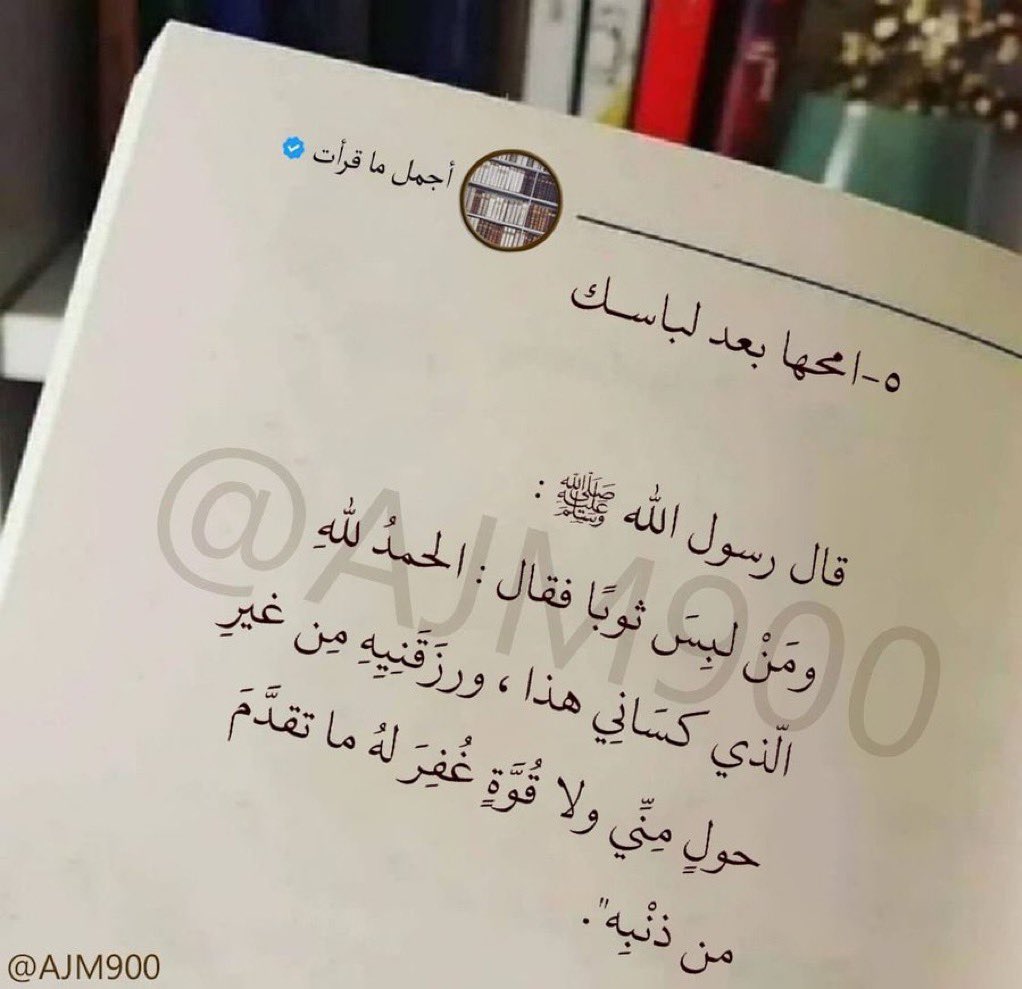 أجمل ما قرأت
٥-امحها بعد لباسك
قال رسول الله ﷺ :
ومَنْ لبِسَ ثوبًا فقال : الحمدُ للهِ
الّذي كسَانِي هذا ، ورزَقَنِيهِ مِن غيرِ
حولٍ مِنِّي ولا قُوَّةٍ غُفِرَ لهُ ما تقدَّمَ
من ذنْبِه".
@AJM900
@AJM900